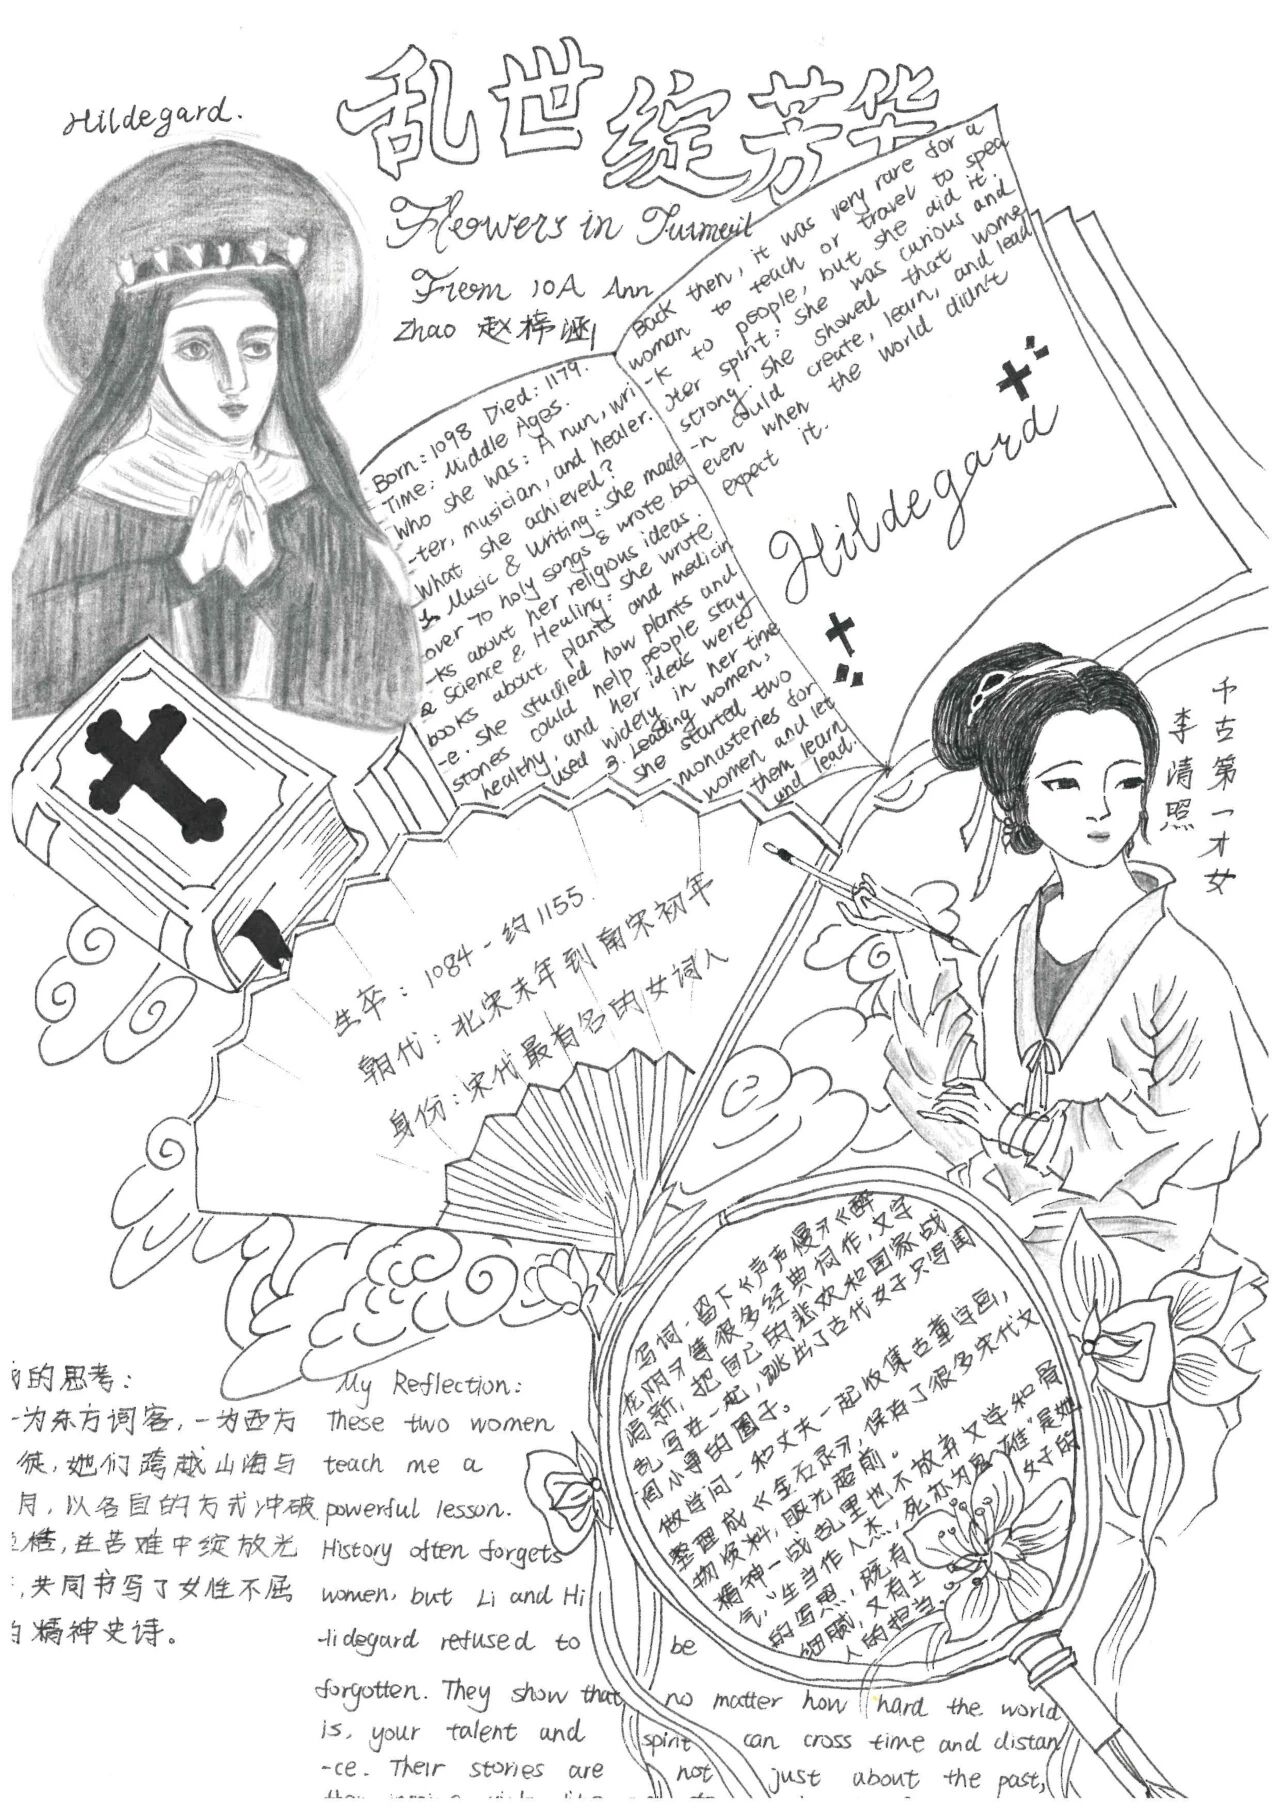 Hildegard.
乱世绽芳华
Flowers in Turmoil
From 10A Ann
Zhao 赵梓涵
Born: 1098 Died: 1179.
Time: Middle Ages.
Who she was: A nun, wri
-ter, musician, and healer.
What she achieved?
1. Music & Writing: She made
over 70 holy songs & wrote boo
-ks about her religious ideas.
2 Science & Healing: she wrote
books about plants and medicin
-e. She studied how plants and
stones could help people stay
healthy, and her ideas were
used widely in her time
3. Leading women,
she started two
monasteries for
women and let
them learn
and lead.
Back then, it was very rare for a
woman to teach or travel to spea
-k to people, but she did it.
Her spirit: She was curious and
strong. She showed that wome
-n could create, learn, and lead
even when the world didn't
expect it.
Hildegard
千古第一才女
李清照
生卒：1084-约1155.
朝代：北宋末年到南宋初年
身份：宋代最有名的女词人
写词-留下《声声慢》《醉
花阴》等很多经典词作，文字
清新，把自己的悲欢和国家战
乱写在一起，跳出了古代女子只写闺
阁小事的圈子。
做学问-和丈夫一起收集古董字画，
整理成《金石录》，保存了很多宋代文
物资料，眼光超前。
精神-战乱里也不放弃文学和骨
气，"生当作人杰，死亦为鬼雄"是她
的写照，既有女子的
细腻，又有士
人的担当。
的思考：
一为东方词客，一为西方
徒，她们跨越山海与
月，以各自的方式冲破
桎，在苦难中绽放光
，共同书写了女性不屈
的精神史诗。
My Reflection:
These two women
teach me a
powerful lesson.
History often forgets
women, but Li and Hi
-ldegard refused to be
forgotten. They show that no matter how hard the world
is, your talent and spirit can cross time and distan
-ce. Their stories are not just about the past,